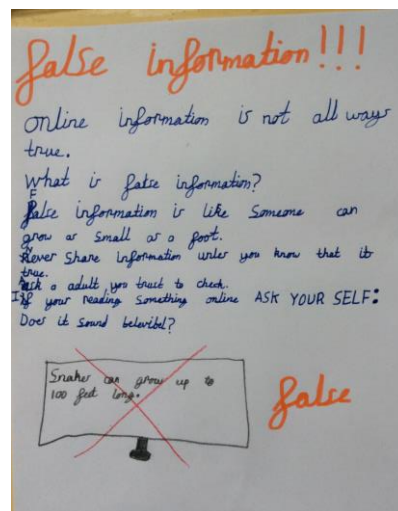 false information!!!
online information is not all ways
true.
What is false information?
False information is like Someone can
grow as Small as a foot.
Never Share Information unles you know that it
true.
Ask a adult you trust to check.
If your reading Something online ASK YOUR SELF:
Does it sound belevibel?
Snakes can grow up to
100 feet long.
false